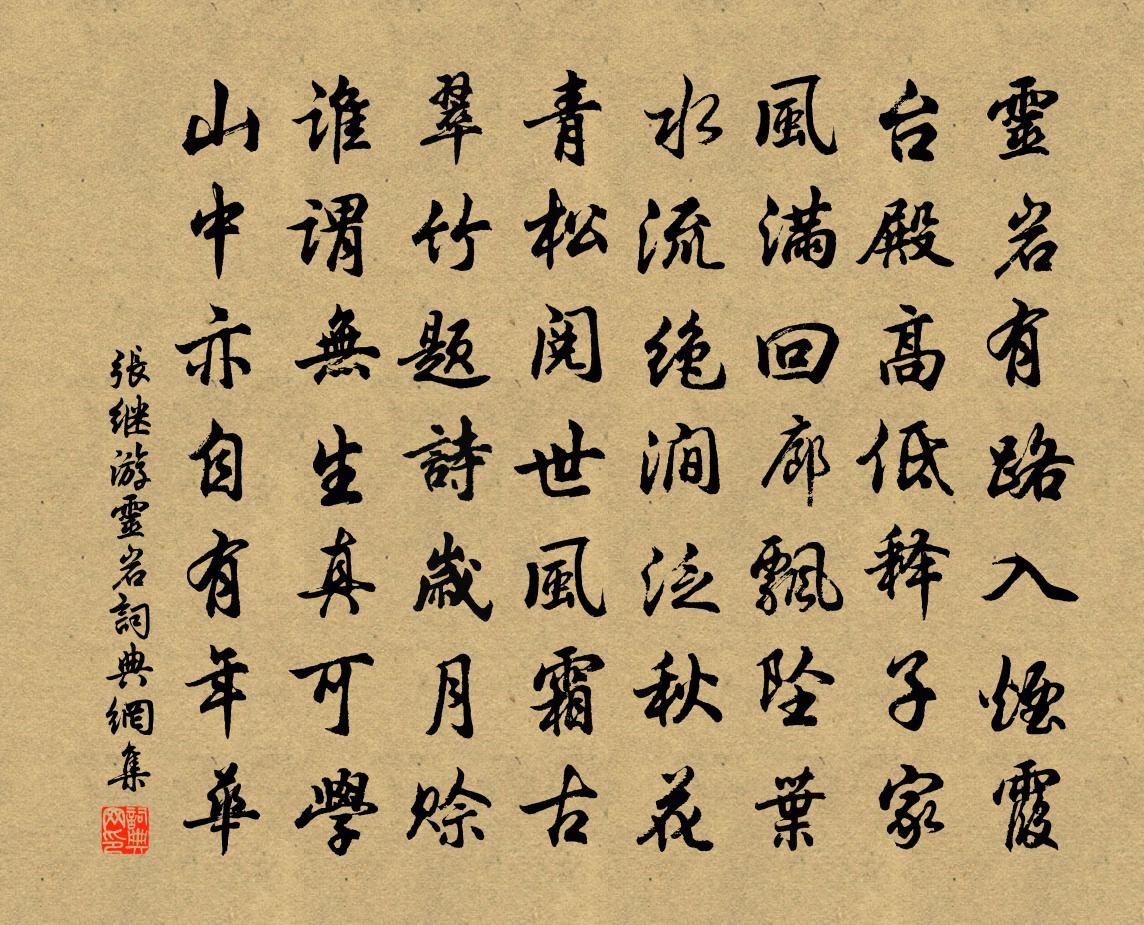 靈岩有路入煙霞
台殿高低释子家
風滿回廊飄坠葉
水流绝澗泛秋花
青松阅世風霜古
翠竹题詩歲月賒
谁謂無生真可學
山中亦自有年華
張继游靈岩詞典網集
詞典网印